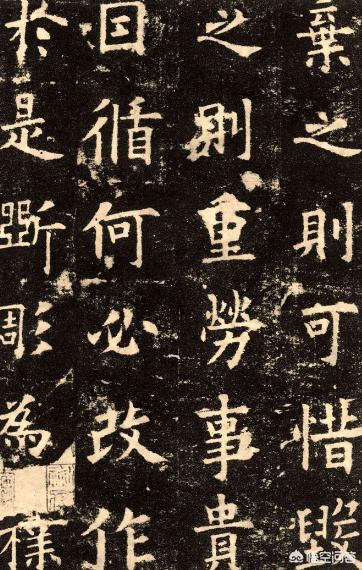 棄之則可惜毀
之則重勞事貴
囙循何必改作
於是斲彫為樸
悟空问答